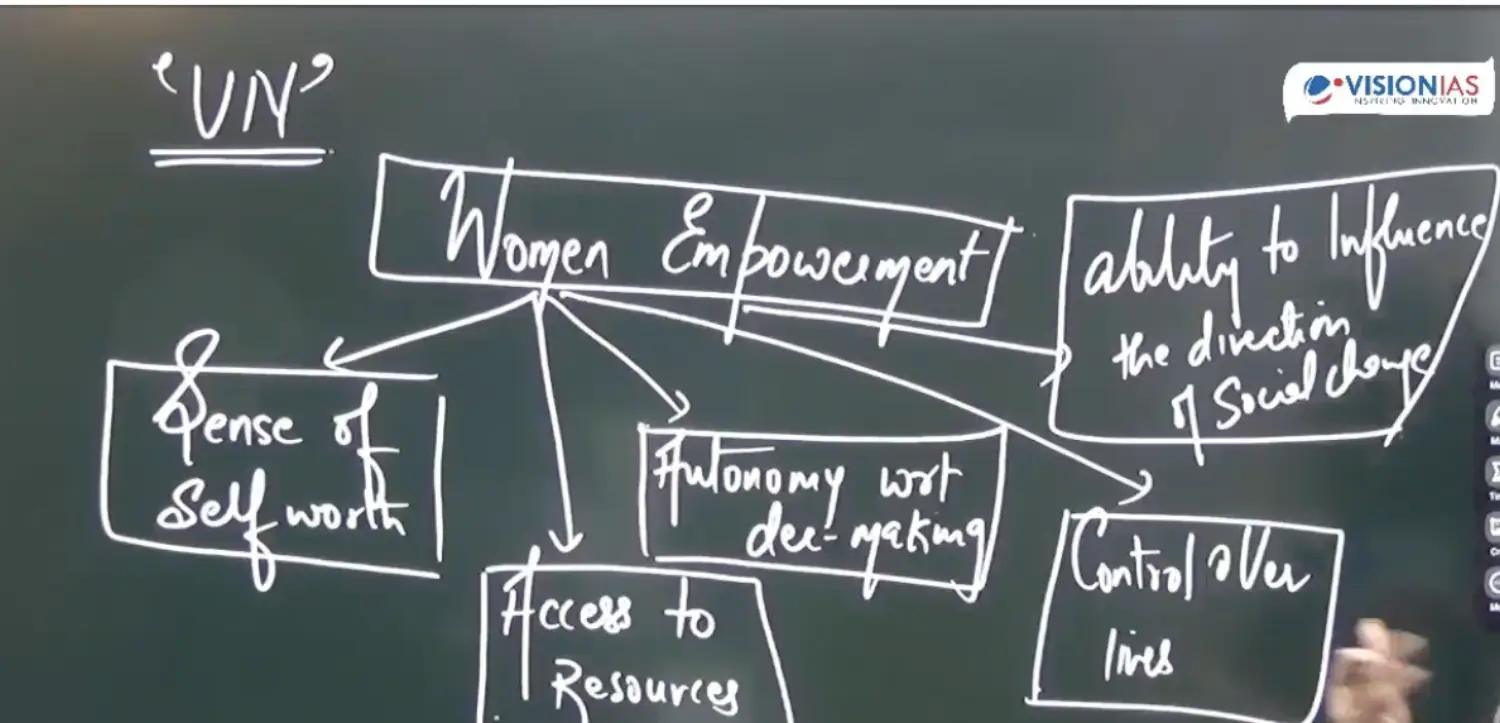 'UN'
VISIONIAS
INSPIRING INNOVATION
Women Empowerment
ability to Influence
the direction
of Social change
Sense of
Self worth
Autonomy wrt
dec-making
Control over
lives
Access to
Resources